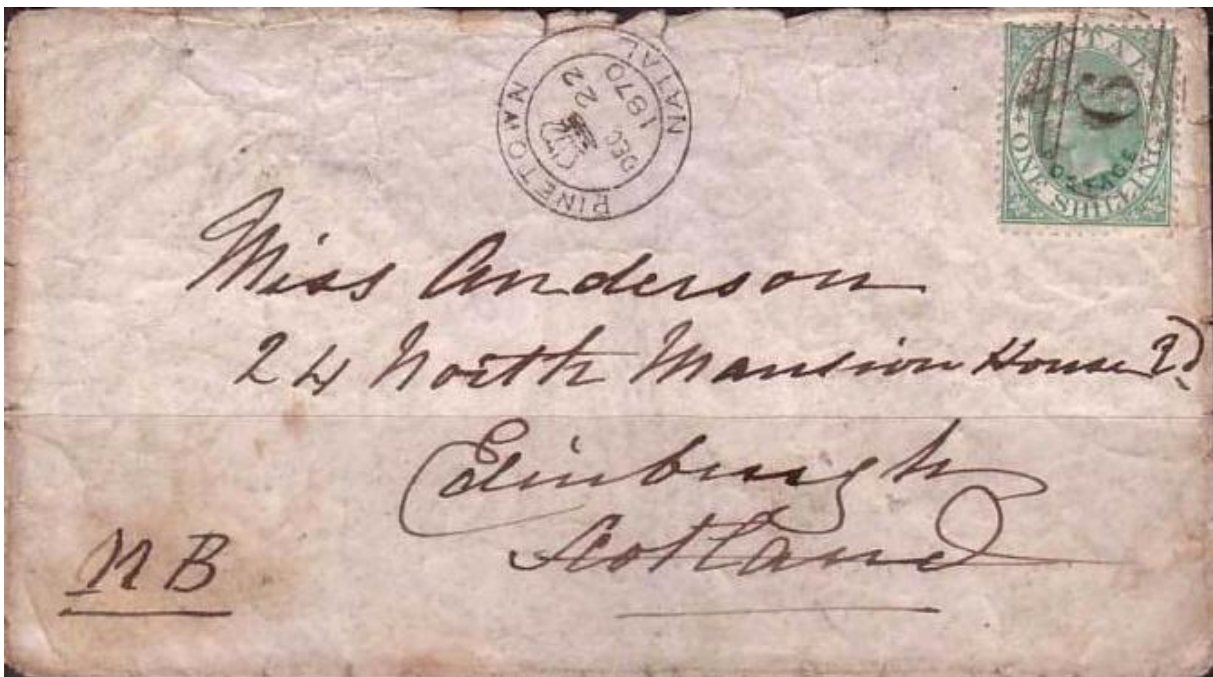 PINETOWN NATAL
DEC 22
1870
NATAL
6
POSTAGE
ONE SHILLING
Miss Anderson
24 North Mansion House Rd
Edinburgh
Scotland
N B